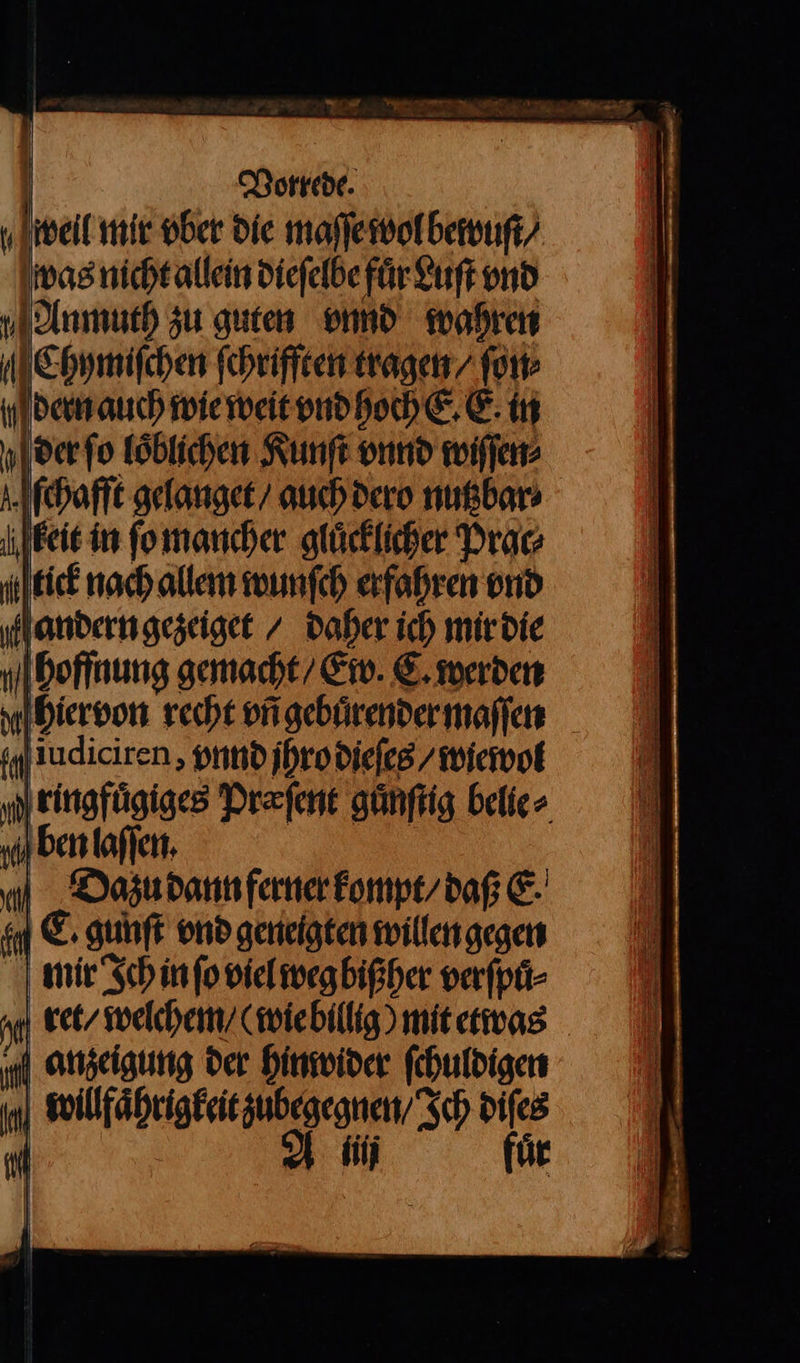 Vorrede.
weil mir vber die maſſe wol bewuſt/
was nicht allein dieſelbe fuͤr Luſt vnd
Anmuth zu guten vnnd wahren
Chymiſchen ſchrifften tragen / ſon⸗
dern auch wie weit vnd hoch E. E. in
der ſo loͤblichen Kunſt vnnd wiſſen⸗
ſchafft gelanget / auch dero nutzbar⸗
keit in ſo mancher gluͤcklicher Prac⸗
tick nach allem wunſch erfahren vnd
andern gezeiget / daher ich mir die
hoffnung gemacht / Ew. E. werden
hiervon recht vñ gebuͤrender maſſen
iudiciren, vnnd jhro dieſes / wiewol
ringfuͤgiges Præſent guͤnſtig belie⸗
ben laſſen.
Dazu dann ferner kompt / daß E.
E. gunſt vnd geneigten willen gegen
mir Ich in ſo viel weg bißher verſpuͤ⸗
ret / welchem / (wie billig) mit etwas
anzeigung der hinwider ſchuldigen
willfaͤhrigkeit zubegegnen / Ich diſes
A iiij fuͤr